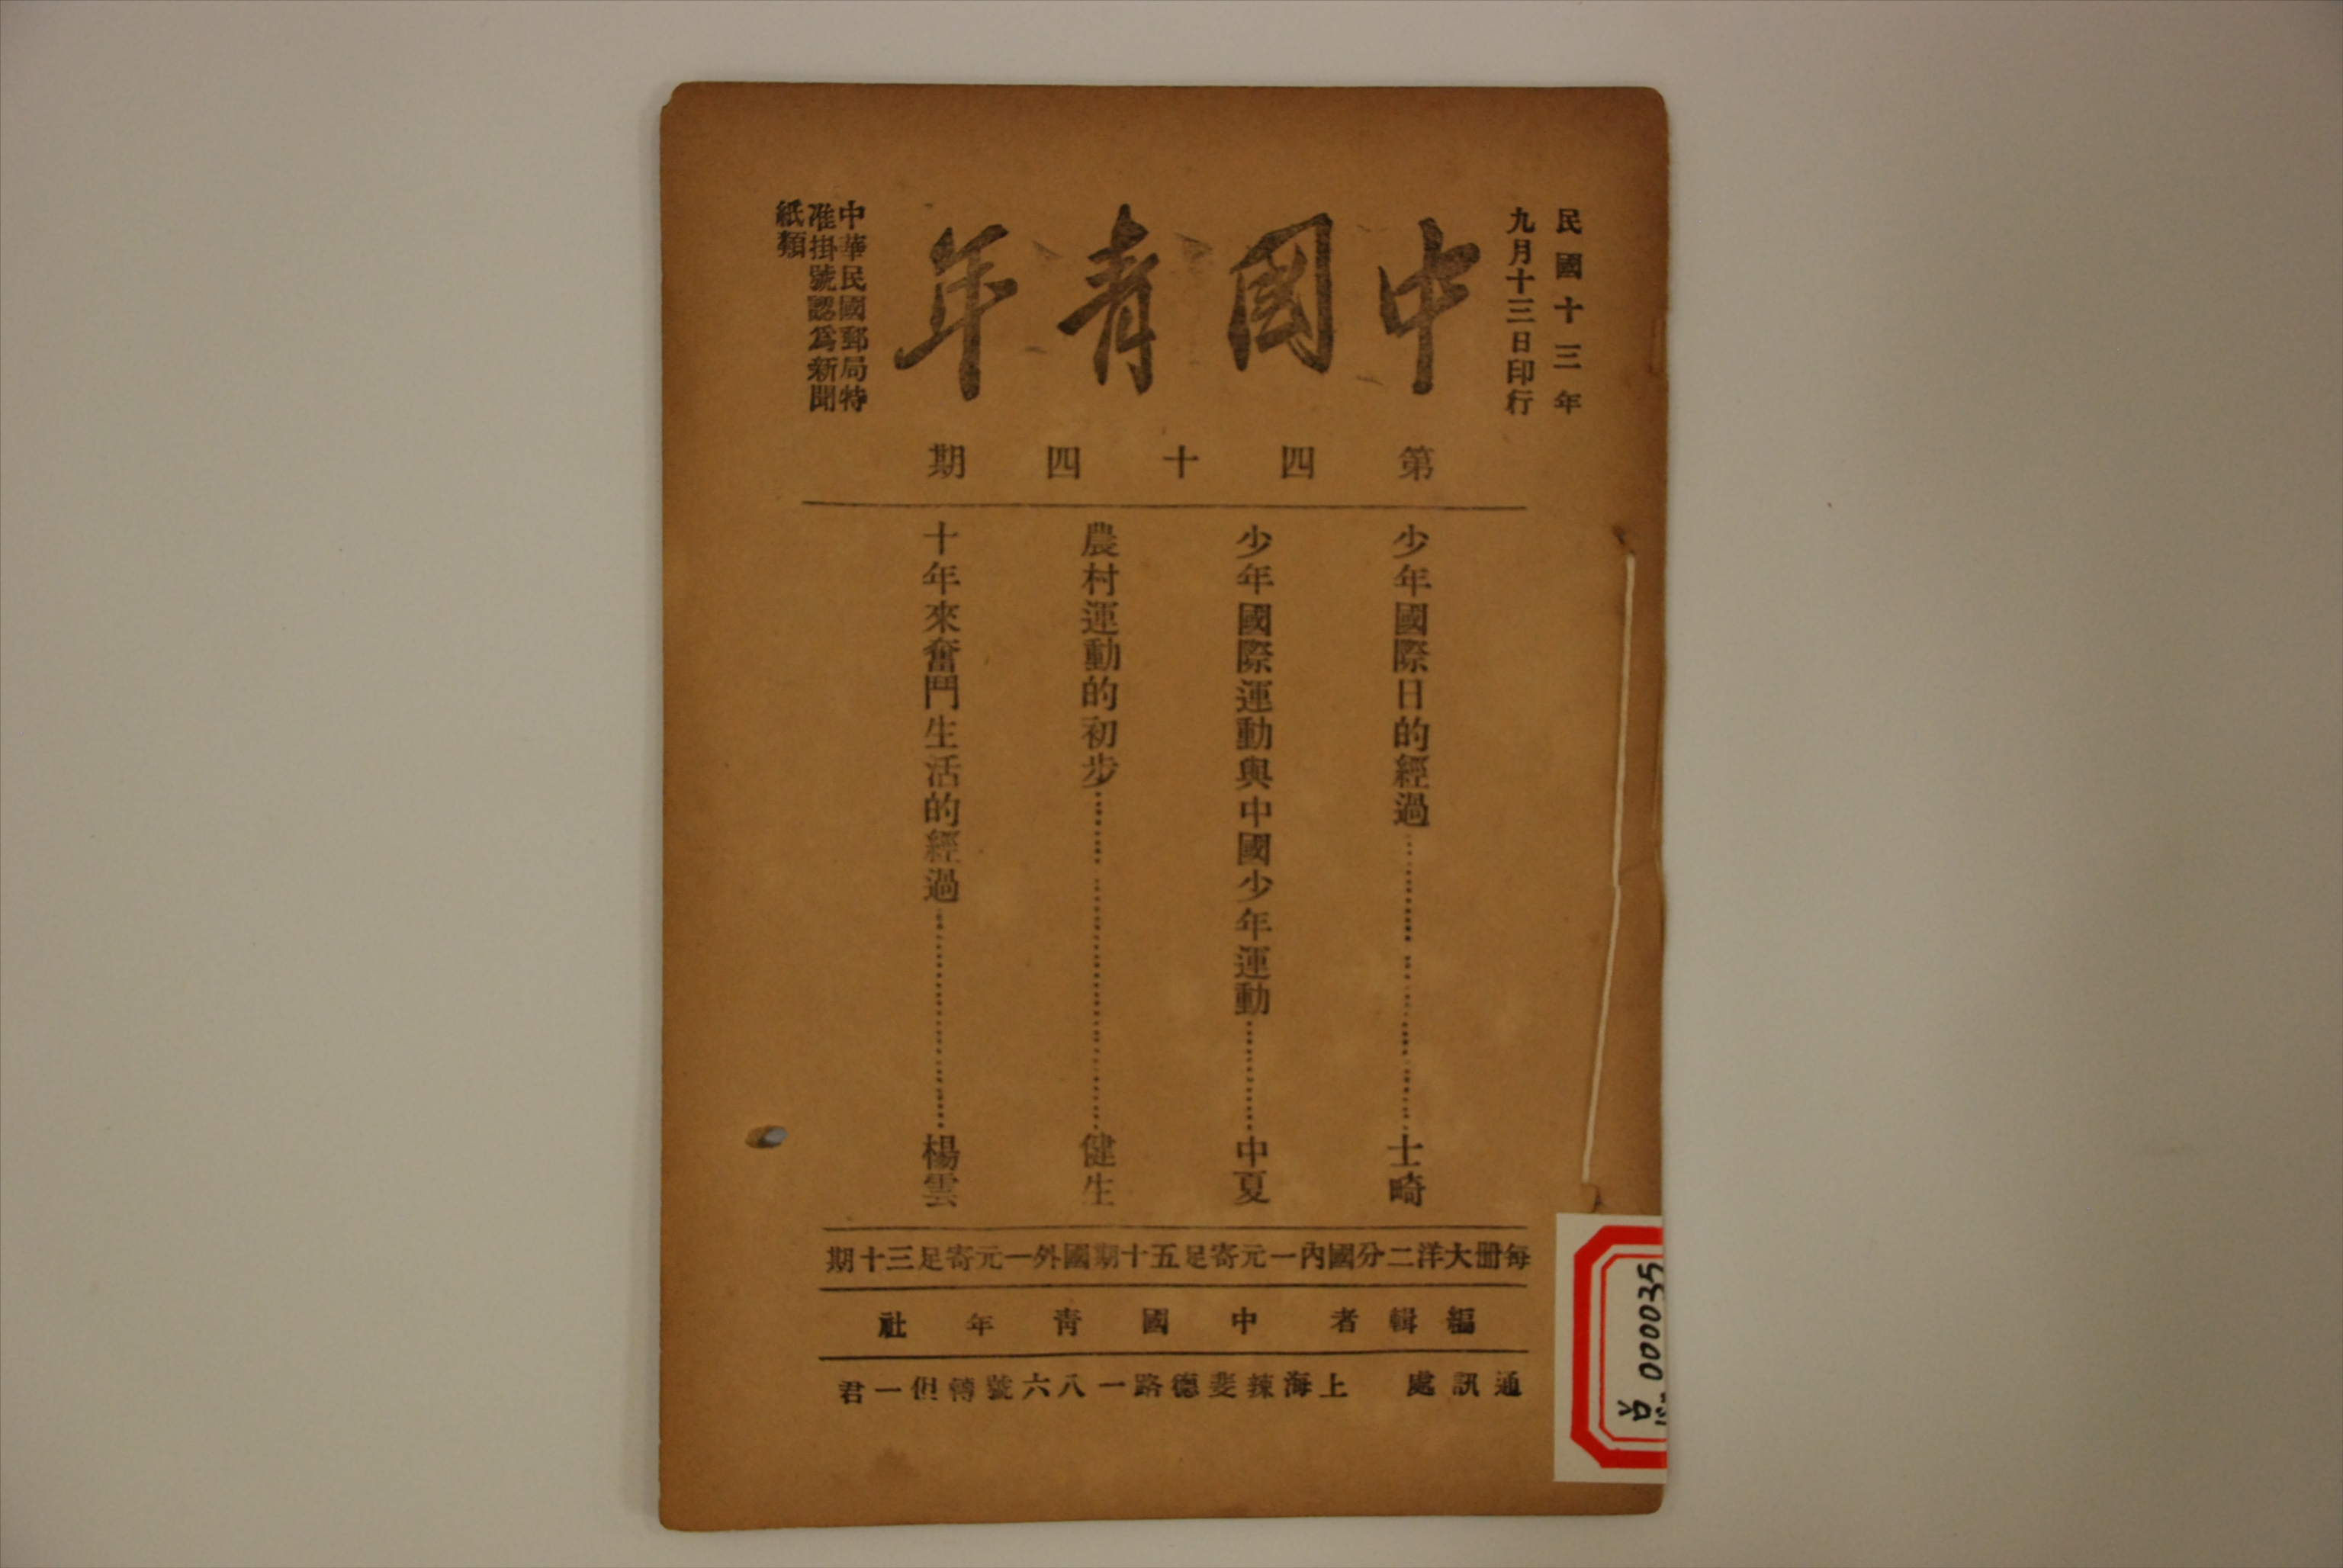 民國十三年
九月十三日印行
中國青年
中華民國郵局特
准掛號認爲新聞
紙類
第四十四期
少年國際日的經過…………士畸
少年國際運動與中國少年運動…………中夏
農村運動的初步…………健生
十年來奮鬥生活的經過…………楊雲
每冊大洋二分國內一元寄足五十期國外一元寄足三十期
編輯者 中國青年社
通訊處 上海辣斐德路一八六號轉但一君
0000035